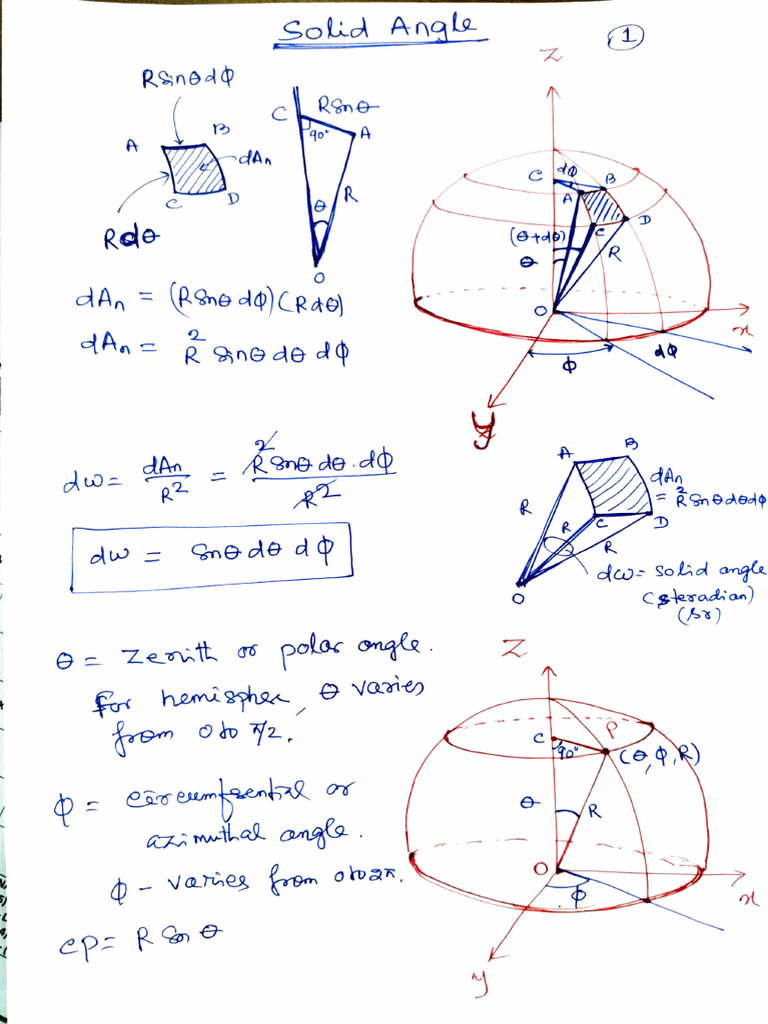 Solid Angle
1
RSinθdφ
A
B
dAn
C
D
Rdθ
C
RSinθ
90°
A
θ
R
O
Z
C
dφ
B
A
D
C
(θ+dθ)
θ
R
O
x
φ
dφ
y
dAn = (RSinθ dφ)(Rdθ)
dAn = R² Sinθ dθ dφ
dω = dAn/R² = R² Sinθ dθ. dφ/R²
dω = Sinθ dθ dφ
A
B
dAn
= R² Sinθdθdφ
R
R
C
D
R
O
dω = Solid angle
(steradian)
(Sr)
θ = Zenith or polar angle.
For hemispher, θ varies
from 0 to π/2.
φ = circumfrential or
azimuthal angle.
φ - varies from 0 to 2π.
CP = R Sin θ
Z
P
C
90°
(θ, φ, R)
θ
R
O
φ
x
y